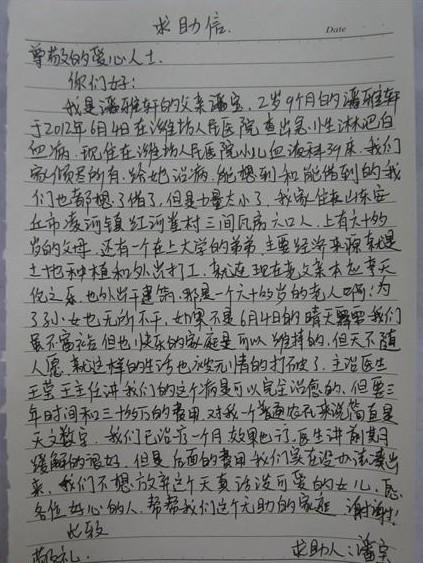 求助信.
Date
尊敬的爱心人士.
你们好:
我是潘雅轩的父亲潘宝, 2岁9个月的潘雅轩
于2012年6月4日在潍坊人民医院查出急小生淋巴白
血病. 现住在潍坊人民医院小儿血液科37床. 我们
家倾其所有. 给她治病. 能想到和能借到的我
们也都想了借了, 但是力量太小了, 我家住在山东安
丘市凌河镇红河崖村三间瓦房六口人. 上有六十的
岁的父母. 还有一个在上大学的弟弟. 主要经济来源就是
土地种植和外出打工. 就在现在老父亲本应享天
伦之乐. 也外出干建筑. 那是一个六十的岁的老人啊! 为
了孙女也无所不干, 如果不是6月4日的晴天霹雳我们
虽不富裕但也快乐的家庭是可以维持的. 但天不随
人愿. 就这样的生活也被无情的打破了. 主治医生
王莹王主任讲我们的这个病是可以完全治愈的. 但要三
年时间和三十的万的费用. 对我一个普通农民来说简直是
天文数字. 我们已治疗一个月效果也行. 医生讲前期
缓解的很好, 但是后面的费用我们实在没办法凑出
来. 我们不想放弃这个天真活泼可爱的女儿. 愿
各位好心的人. 帮帮我们这个无助的家庭 谢谢!
此致
敬礼. 求助人: 潘宝